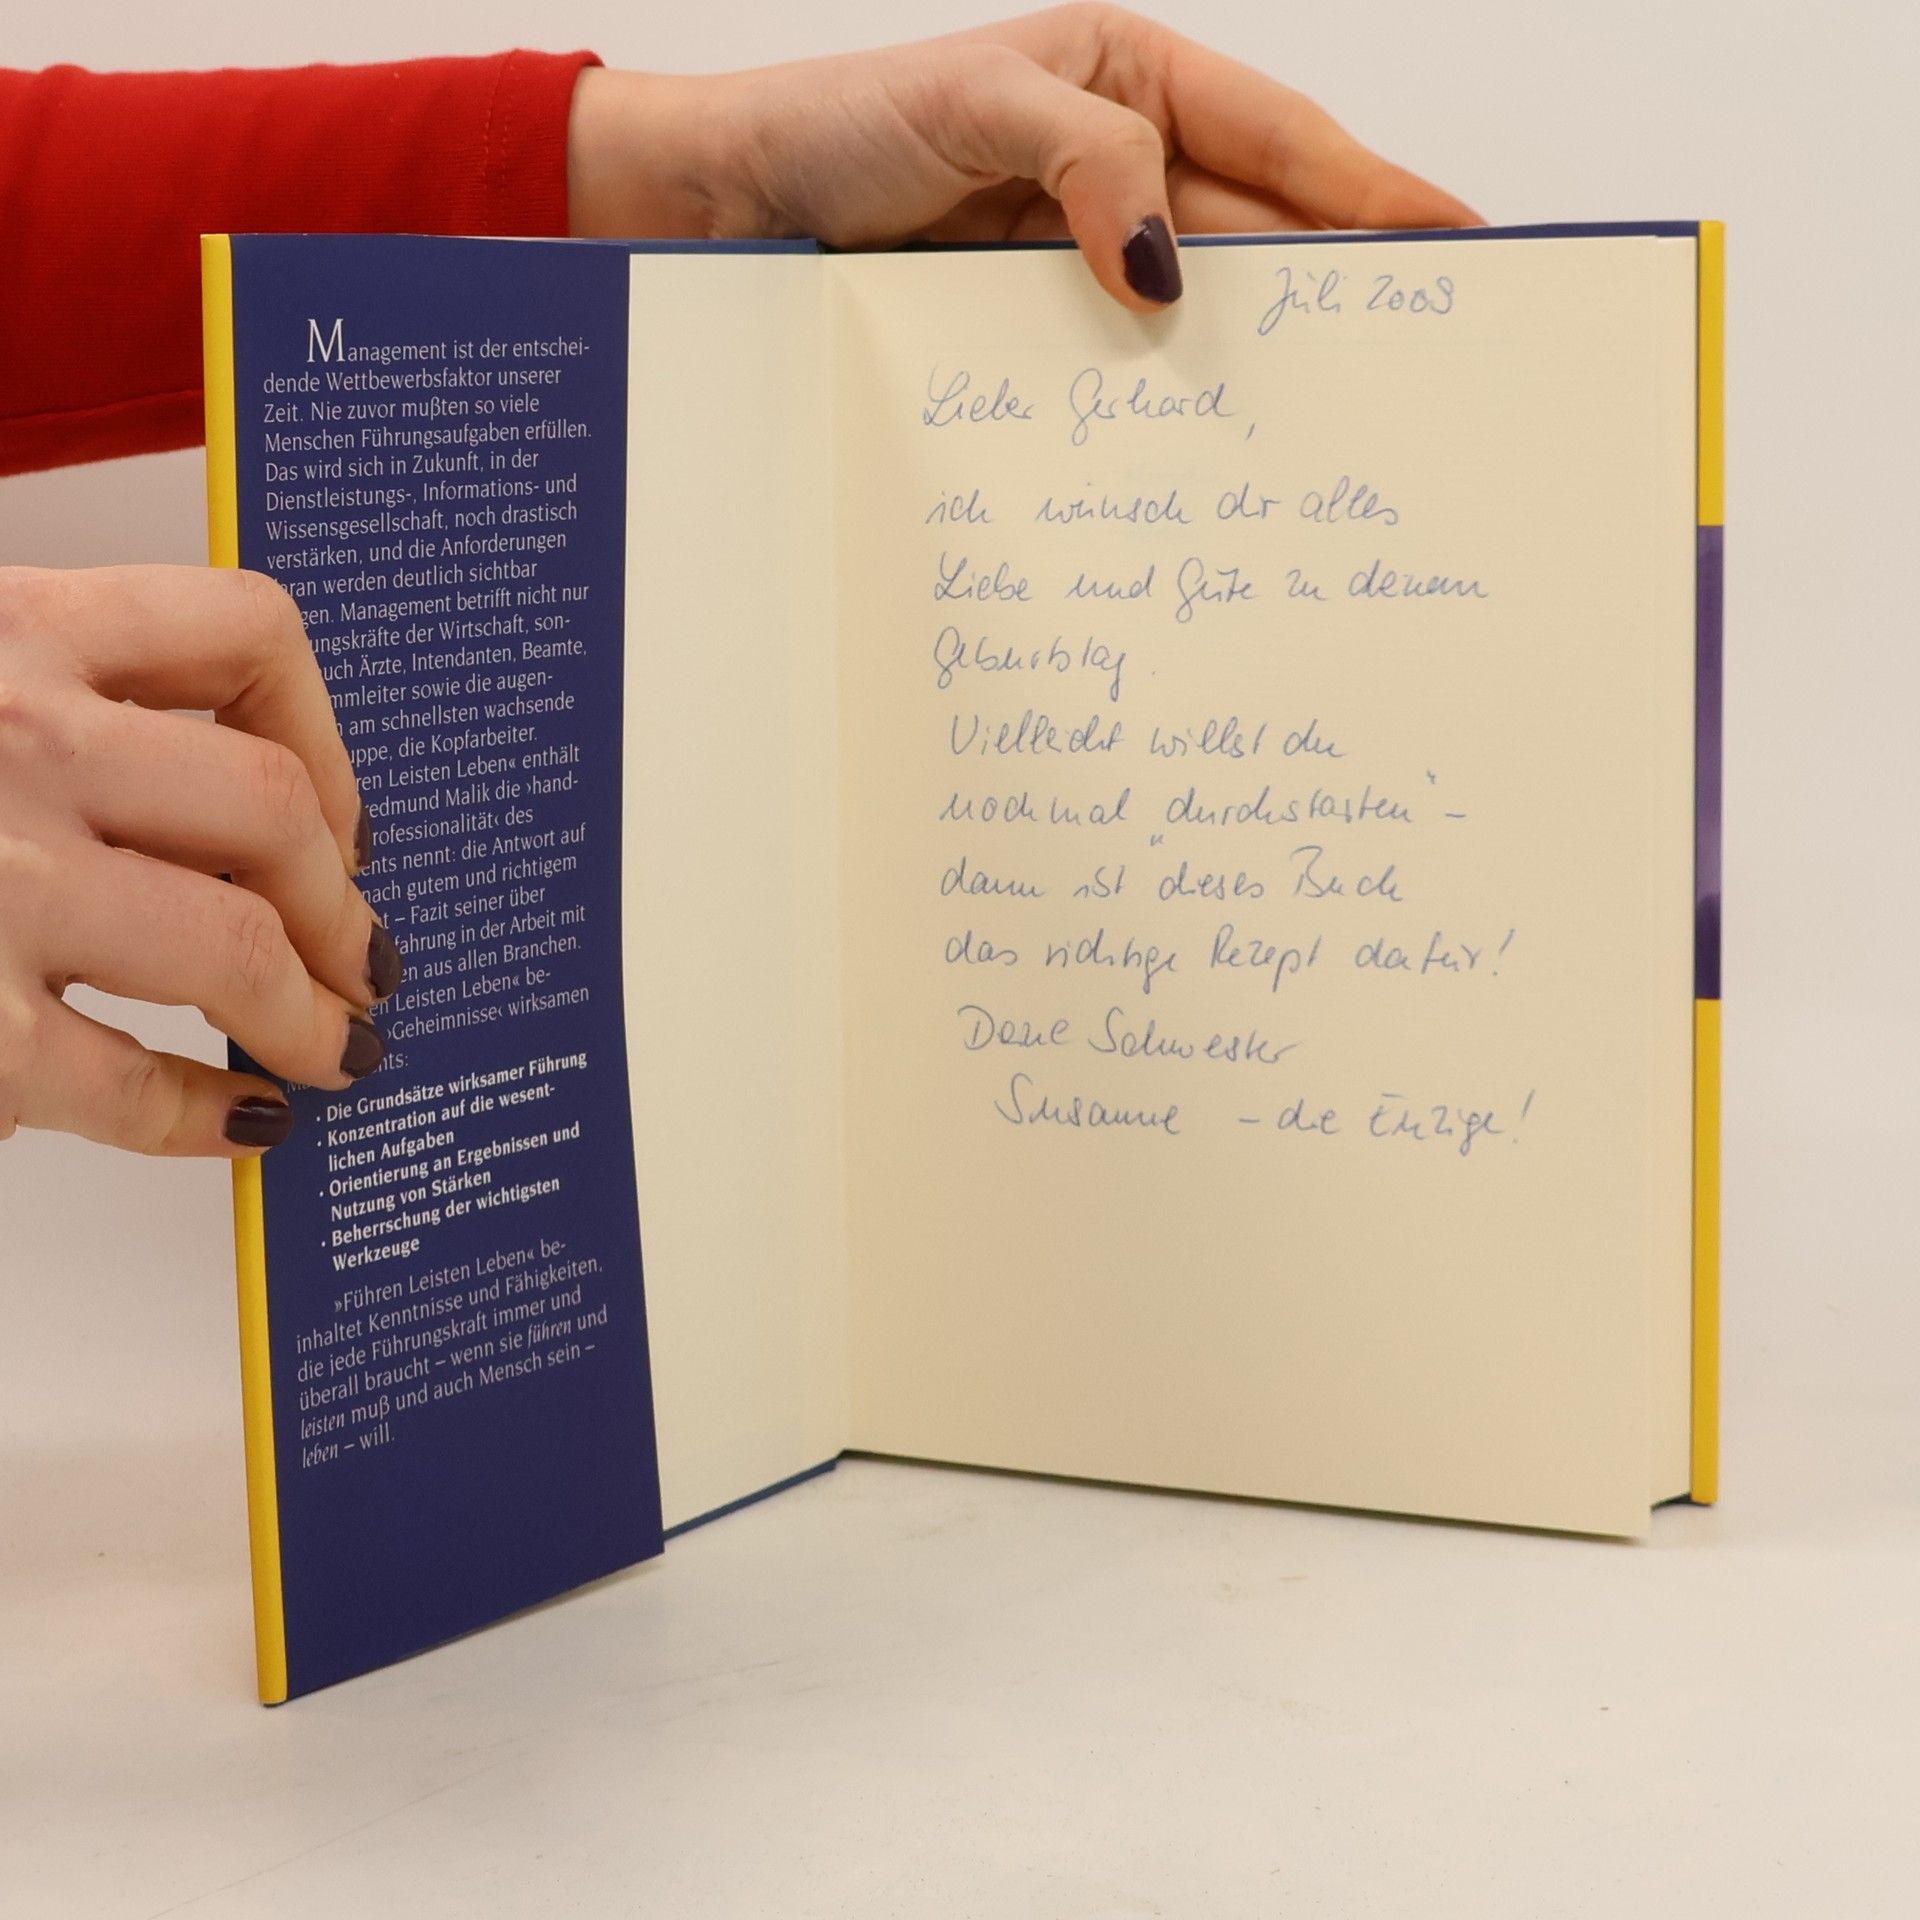 Management ist der entschei-
dende Wettbewerbsfaktor unserer
Zeit. Nie zuvor mußten so viele
Menschen Führungsaufgaben erfüllen.
Das wird sich in Zukunft, in der
Dienstleistungs-, Informations- und
Wissensgesellschaft, noch drastisch
verstärken, und die Anforderungen
aran werden deutlich sichtbar
gen. Management betrifft nicht nur
ungskräfte der Wirtschaft, son-
uch Ärzte, Intendanten, Beamte,
mmleiter sowie die augen-
am schnellsten wachsende
uppe, die Kopfarbeiter.
ren Leisten Leben« enthält
redmund Malik die ›hand-
rofessionalität‹ des
ents nennt: die Antwort auf
nach gutem und richtigem
t – Fazit seiner über
fahrung in der Arbeit mit
en aus allen Branchen.
en Leisten Leben« be-
›Geheimnisse‹ wirksamen
nts:
• Die Grundsätze wirksamer Führung
• Konzentration auf die wesent-
lichen Aufgaben
• Orientierung an Ergebnissen und
Nutzung von Stärken
• Beherrschung der wichtigsten
Werkzeuge
»Führen Leisten Leben« be-
inhaltet Kenntnisse und Fähigkeiten,
die jede Führungskraft immer und
überall braucht – wenn sie führen und
leisten muß und auch Mensch sein –
leben – will.
Juli 2009
Lieber Gerhard,
ich wünsch dir alles
Liebe und Gute zu deinem
Geburtstag.
Vielleicht willst du
nochmal „durchstarten“ –
dann ist dieses Buch
das richtige Rezept dafür!
Deine Schwester
Susanne – die Einzige!